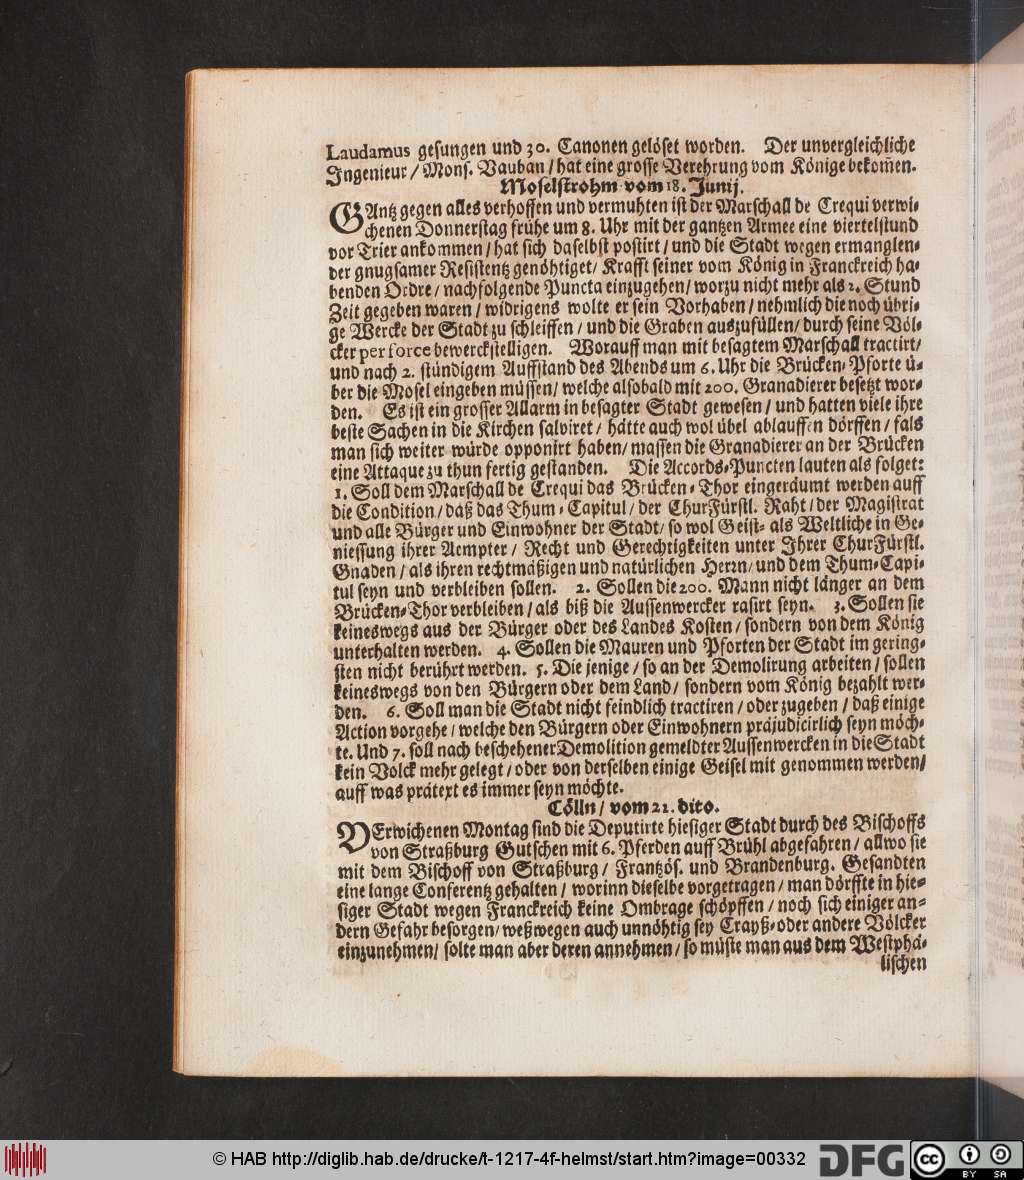 Laudamus gesungen und 30. Canonen gelöset worden. Der unvergleichliche
Ingenieur / Mons. Vauban / hat eine grosse Verehrung vom Könige bekom̃en.
Moselstrohm vom 18. Junij.
GAntz gegen alles verhoffen und vermuhten ist der Marschall de Crequi verwi-
chenen Donnerstag frühe um 8. Uhr mit der gantzen Armee eine viertelstund
vor Trier ankommen / hat sich daselbst postirt / und die Stadt wegen ermanglen-
der gnugsamer Resistentz genöhtiget / Krafft seiner vom König in Franckreich ha-
benden Ordre / nachfolgende Puncta einzugehen / worzu nicht mehr als 24. Stund
Zeit gegeben waren / widrigens wolte er sein Vorhaben / nehmlich die noch übri-
ge Wercke der Stadt zu schleiffen / und die Graben auszufüllen / durch seine Völ-
cker per force bewerckstelligen. Worauff man mit besagtem Marschall tractirt /
und nach 2. stündigem Auffstand des Abends um 6. Uhr die Brücken-Pforte ü-
ber die Mosel eingeben müssen / welche alsobald mit 200. Granadierer besetzt wor-
den. Es ist ein grosser Allarm in besagter Stadt gewesen / und hatten viele ihre
beste Sachen in die Kirchen salviret / hätte auch wol übel ablauffen dörffen / fals
man sich weiter würde opponirt haben / massen die Granadierer an der Brücken
eine Attaque zu thun fertig gestanden. Die Accords-Puncten lauten als folget:
1. Soll dem Marschall de Crequi das Brücken-Thor eingeräumt werden auff
die Condition / daß das Thum-Capitul / der ChurFürstl. Raht / der Magistrat
und alle Bürger und Einwohner der Stadt / so wol Geist- als Weltliche in Ge-
niessung ihrer Aempter / Recht und Gerechtigkeiten unter Ihrer ChurFürstl.
Gnaden / als ihren rechtmäßigen und natürlichen Herrn / und dem Thum-Capi-
tul seyn und verbleiben sollen. 2. Sollen die 200. Mann nicht länger an dem
Brücken-Thor verbleiben / als biß die Aussenwercker rasirt seyn. 3. Sollen sie
keineswegs aus der Bürger oder des Landes Kosten / sondern von dem König
unterhalten werden. 4. Sollen die Mauren und Pforten der Stadt im gering-
sten nicht berührt werden. 5. Die jenige / so an der Demolirung arbeiten / sollen
keineswegs von den Bürgern oder dem Land / sondern vom König bezahlt wer-
den. 6. Soll man die Stadt nicht feindlich tractiren / oder zugeben / daß einige
Action vorgehe / welche den Bürgern oder Einwohnern präjudicirlich seyn möch-
te. Und 7. soll nach beschehener Demolition gemeldter Aussenwercken in die Stadt
kein Volck mehr gelegt / oder von derselben einige Geisel mit genommen werden /
auff was prätext es immer seyn möchte.
Cölln / vom 21. dito.
VErwichenen Montag sind die Deputirte hiesiger Stadt durch des Bischoffs
von Straßburg Gutschen mit 6. Pferden auff Brühl abgefahren / allwo sie
mit dem Bischoff von Straßburg / Frantzös. und Brandenburg. Gesandten
eine lange Conferentz gehalten / worinn dieselbe vorgetragen / man dörffte in hie-
siger Stadt wegen Franckreich keine Ombrage schöpffen / noch sich einiger an-
dern Gefahr besorgen / weßwegen auch unnöhtig sey Crayß- oder andere Völcker
einzunehmen / solte man aber deren annehmen / so müste man aus dem Westphä-
lischen
© HAB http://diglib.hab.de/drucke/t-1217-4f-helmst/start.htm?image=00332
DFG
cc BY SA